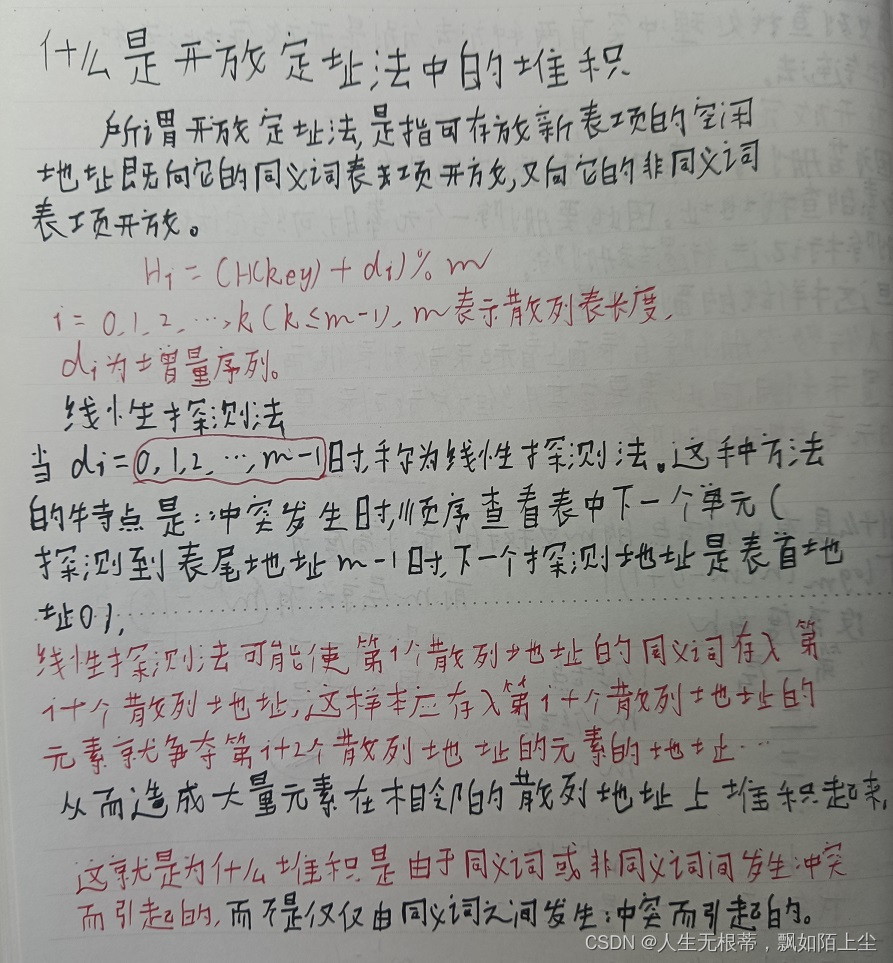 什么是开放定址法中的堆积
所谓开放定址法,是指可存放新表项的空闲
地址既向它的同义词表项开放,又向它的非同义词
表项开放。
Hi = (H(key) + di) % m
i = 0,1,2,…,k (k≤m-1), m表示散列表长度,
di为增量序列。
线性探测法
当 di = 0,1,2,…,m-1时,称为线性探测法。这种方法
的特点是:冲突发生时,顺序查看表中下一个单元(
探测到表尾地址m-1时,下一个探测地址是表首地
址0),
线性探测法可能使第i个散列地址的同义词存入第
i+个散列地址,这样本应存入第i+个散列地址的
元素就争夺第i+2个散列地址的元素的地址…
从而造成大量元素在相邻的散列地址上堆积起来,
这就是为什么堆积是由于同义词或非同义词间发生冲突
而引起的,而不是仅仅由同义词之间发生冲突而引起的。
CSDN @人生无根蒂，飘如陌上尘